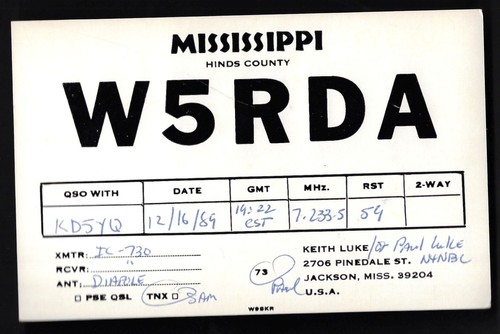 MISSISSIPPI
HINDS COUNTY
W5RDA
QSO WITH DATE GMT MHz. RST 2-WAY
KD5YQ 12/16/89 19:22 CST 7.233.5 59
XMTR: IC-730
RCVR: "
ANT: DIAPOLE
□ PSE QSL TNX □ 8AM
73 Paul
KEITH LUKE/or Paul Luke
2706 PINEDALE ST. N4NBL
JACKSON, MISS. 39204
U.S.A.
W9SKR